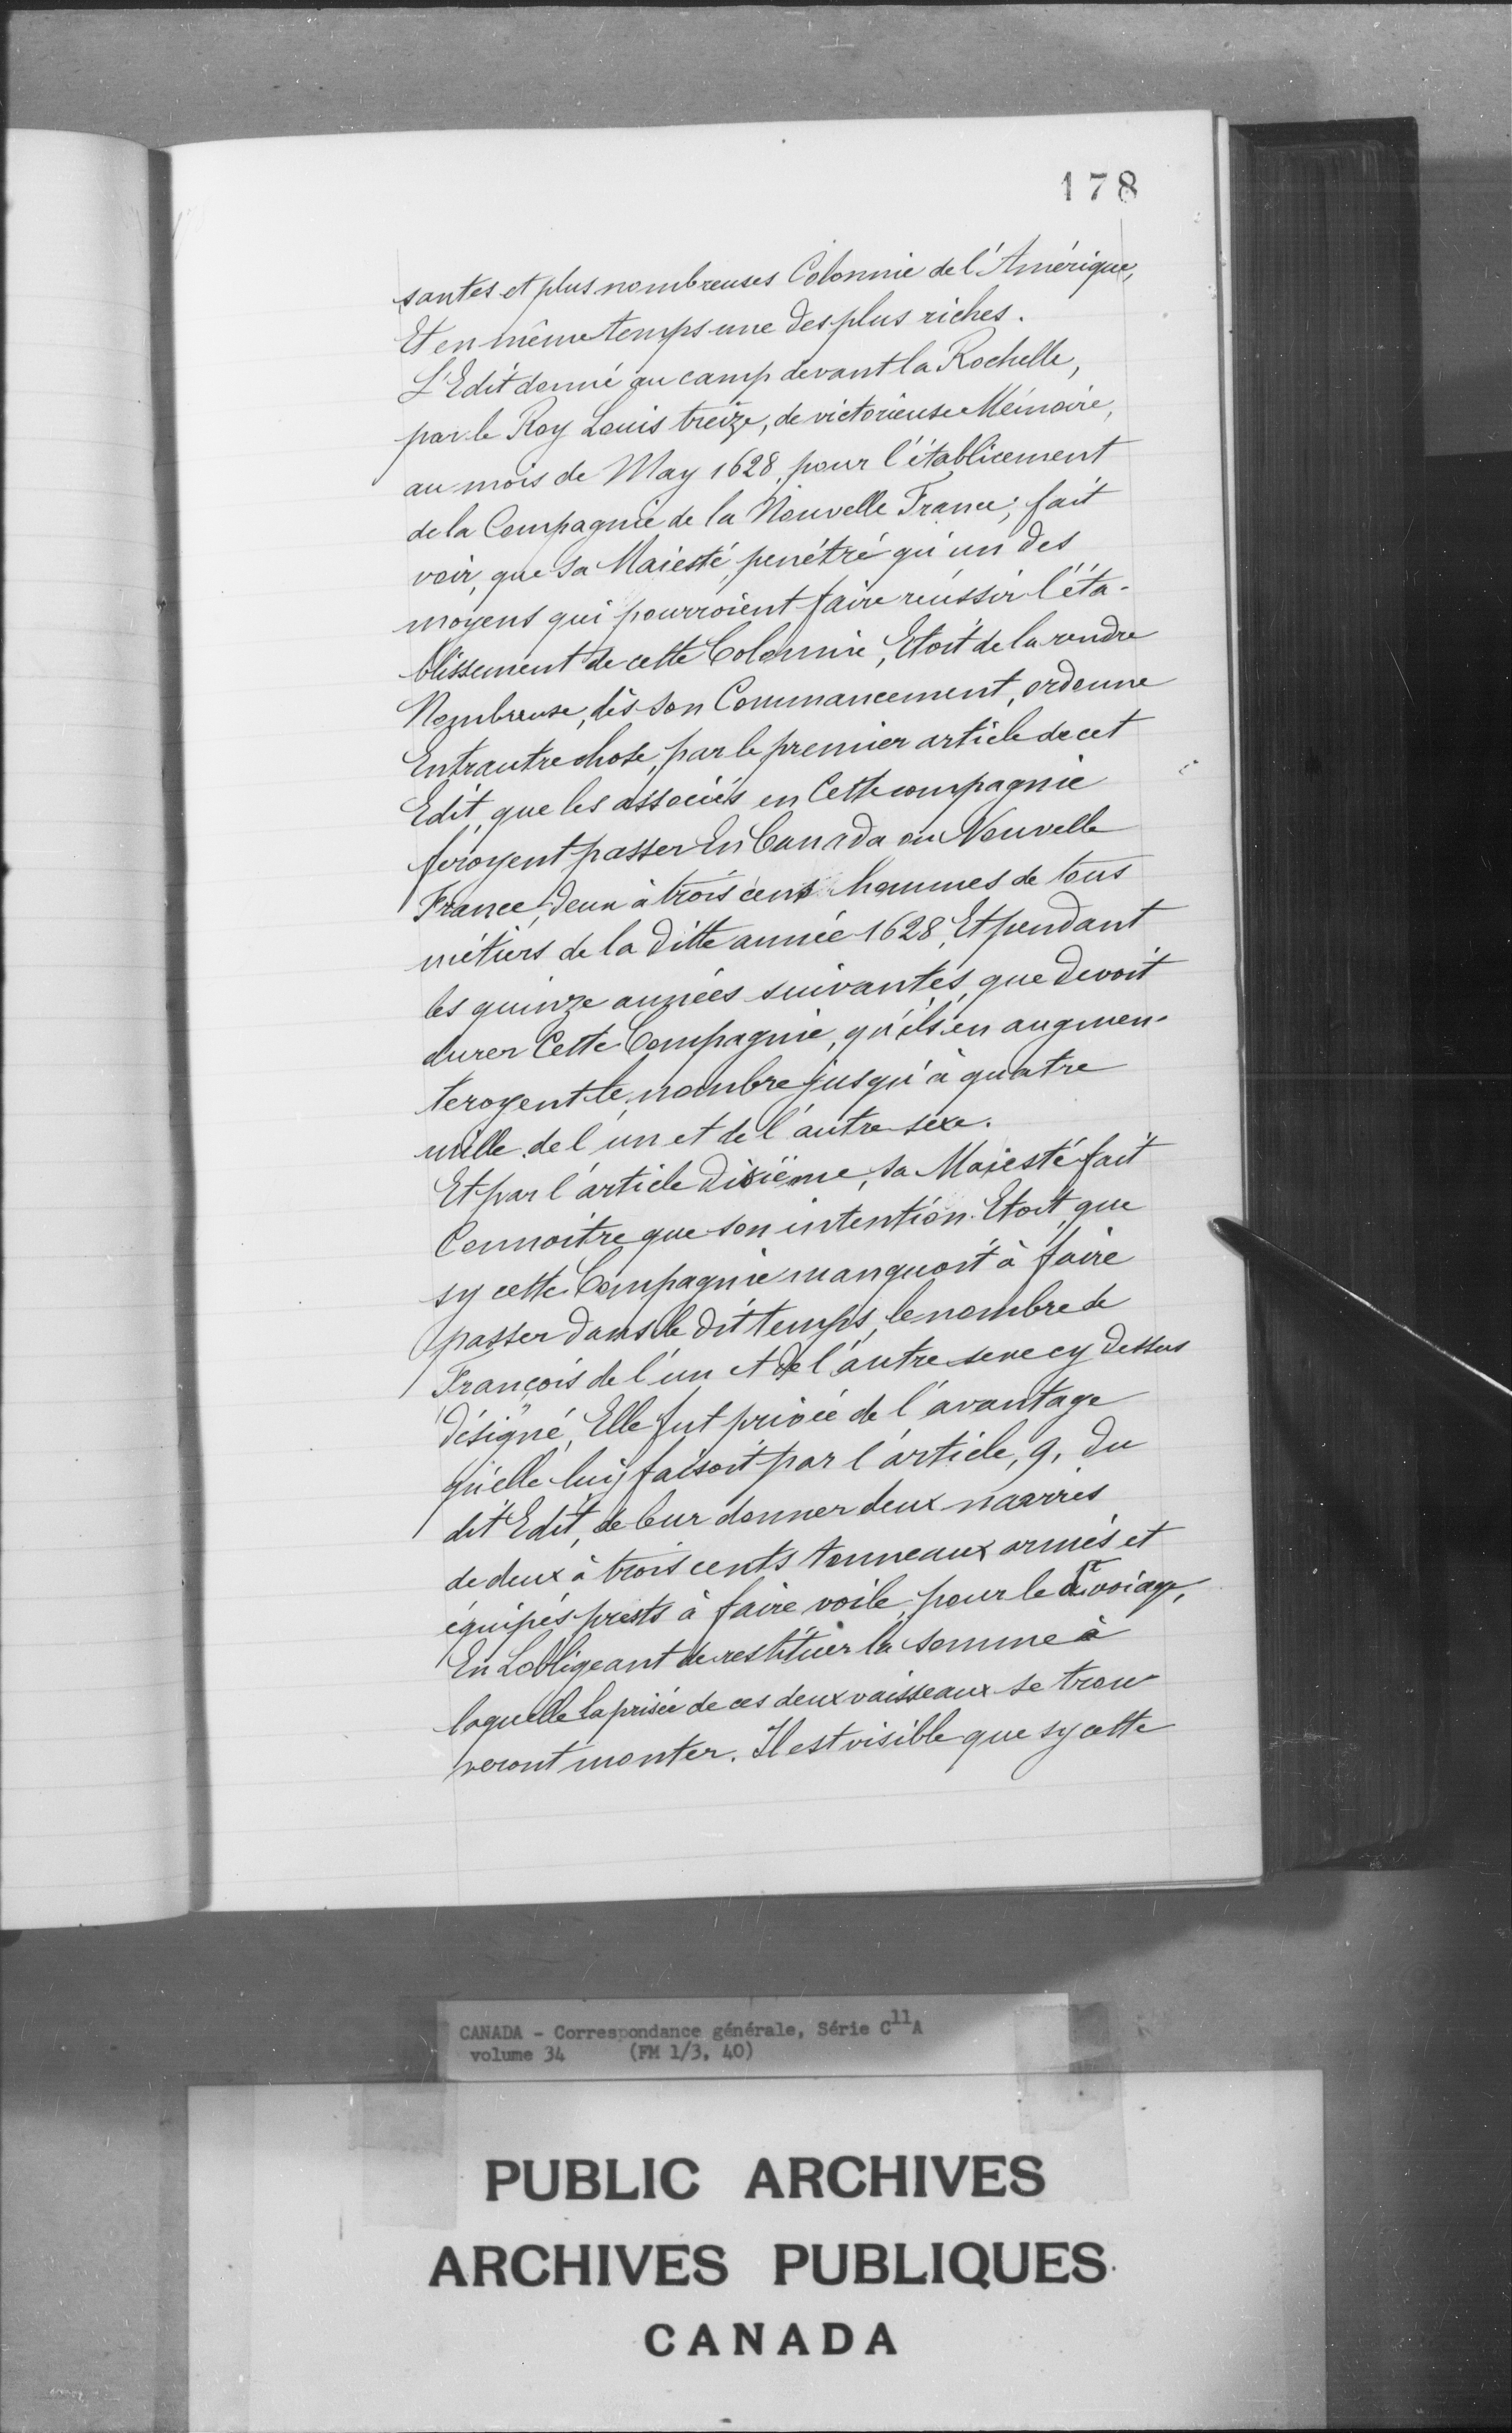 178
santes et plus nombreuses Colonnie de l'Amérique,
Et en même temps une des plus riches.
L'Edit donné au camp devant la Rochelle,
par le Roy Louis treize, de victorieuse Mémoire,
au mois de May 1628, pour l'établicement
de la Compagnie de la Nouvelle France; fait
voir, que Sa Maiesté, penétré qu'un des
moyens qui pourroient faire réussir l'éta-
blissement de cette Colonnie, Etoit de la rendre
Nombreuse, dès son Commancement, ordonne
Entrautre chose, par le premier article de cet
Edit, que les associés en Cette compagnie
feroyent passer En Canada ou Nouvelle
France, deux à trois cens hommes de tous
métiers de la ditte année 1628, Et pendant
les quinze années suivantes, que devoit
durer Cette Compagnie, qu'ils en augmen-
teroyent le nombre jusqu'à quatre
mille de l'un et de l'autre sexe.
Et par l'article dixième, sa Maiesté fait
Connoitre que son intention Etoit, que
sy cette Compagnie manquoit à faire
passer dans le dit temps, le nombre de
François de l'un et de l'autre sexe cy dessus
désigné, Elle fut privée de l'avantage
qu'elle luy faisoit par l'article, 9, du
dit Edit, de leur donner deux navires
de deux à trois cents tonneaux armés et
équipés prests à faire voile, pour le dt voiage,
En Lobligeant de restituer la somme à
laquelle la prisée de ces deux vaisseaux se trou
veront monter. Il est visible que sy cette
CANADA - Correspondance générale, Série C11A
volume 34 (FM 1/3, 40)
PUBLIC ARCHIVES
ARCHIVES PUBLIQUES
CANADA